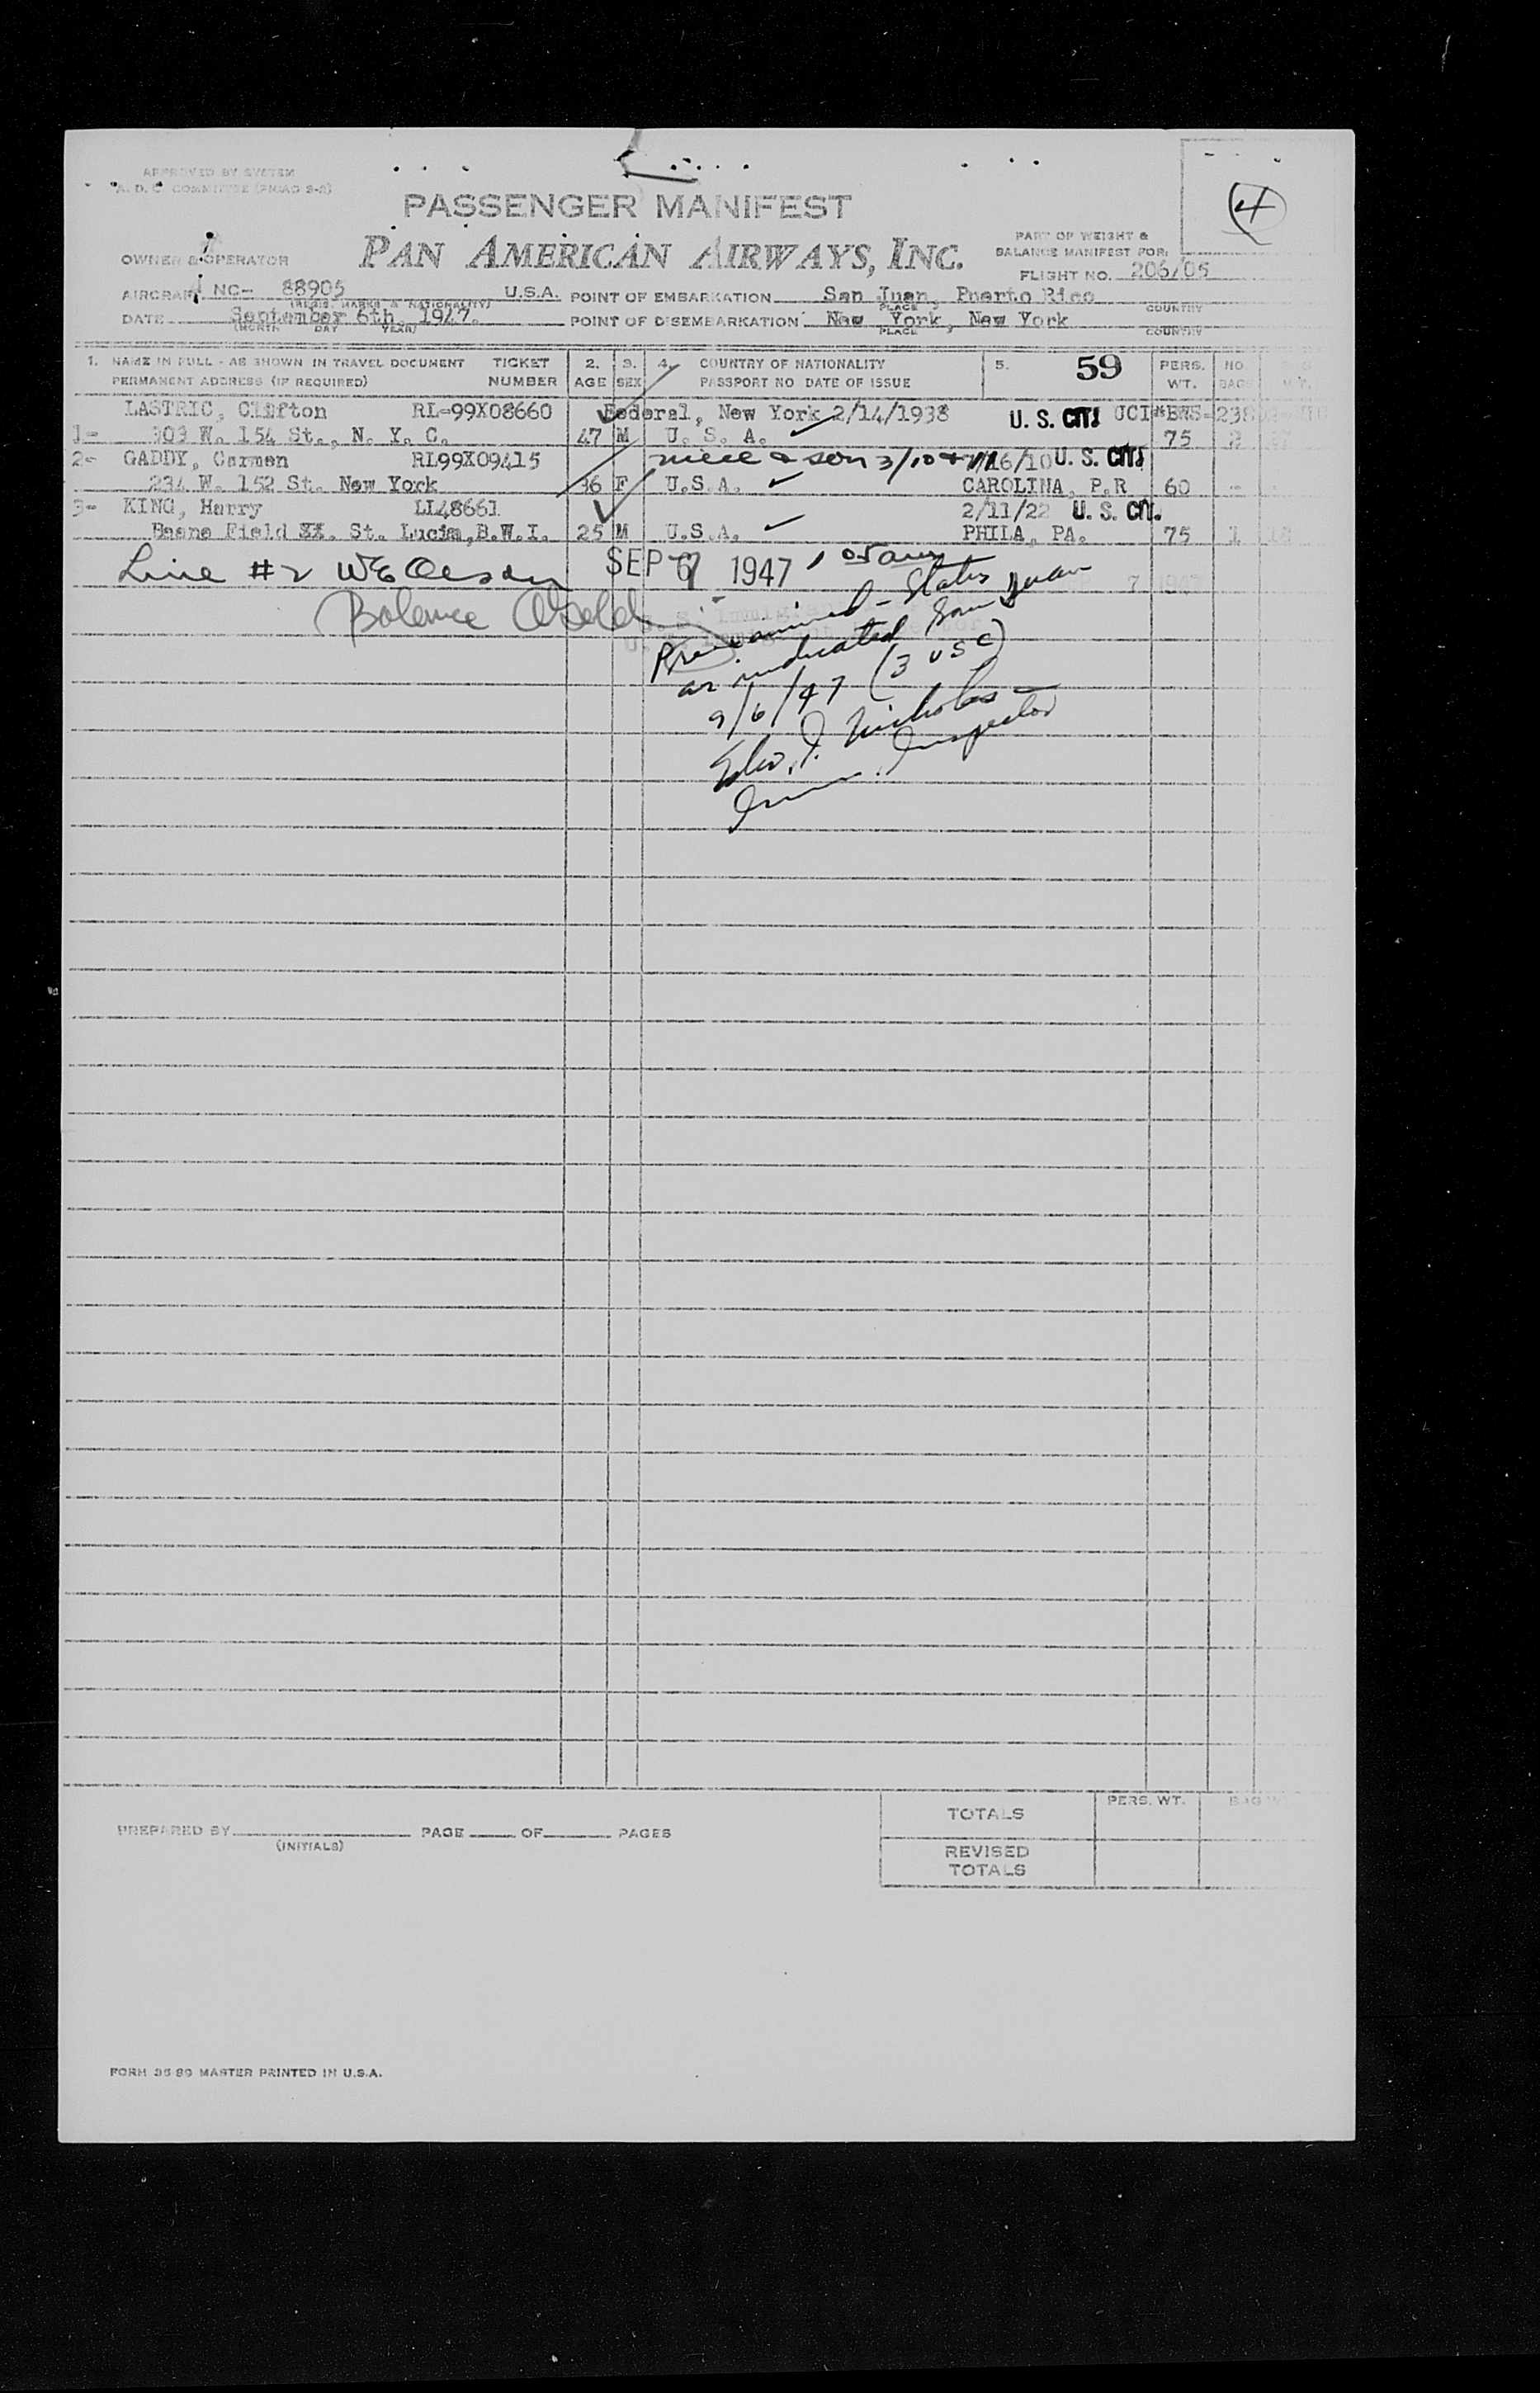 APPROVED BY SYSTEM
A. D. C. COMMITTEE
4
PASSENGER MANIFEST
PAN AMERICAN AIRWAYS, INC.
PART OF WEIGHT &
BALANCE MANIFEST FOR:
OWNER & OPERATOR
FLIGHT NO. 206/05
AIRCRAFT NC- 88905 U.S.A. POINT OF EMBARKATION San Juan, Puerto Rico
(REGIS. MARKS & NATIONALITY) PLACE COUNTRY
DATE September 6th, 1947. POINT OF DISEMBARKATION New York, New York
(MONTH DAY YEAR) PLACE COUNTRY
1. NAME IN FULL - AS SHOWN IN TRAVEL DOCUMENT TICKET 2. 3. 4. COUNTRY OF NATIONALITY 5. 59 PERS. NO.
PERMANENT ADDRESS (IF REQUIRED) NUMBER AGE SEX PASSPORT NO DATE OF ISSUE WT. BAGS
LASTRIC, Clifton RL-99X08660 Federal, New York 2/14/1938 U. S. CIT.
1- 303 W. 154 St., N. Y. C. 47 M U. S. A. 75
2- GADDY, Carmen RL99X09415 niece & son 3/10 16/10 U. S. CIT.
234 W. 152 St. New York 36 F U.S.A. CAROLINA, P.R 60 -
3- KING, Harry LL48661 2/11/22 U. S. CIT.
Beane Field XX. St. Lucia, B.W.I. 25 M U.S.A. PHILA, PA. 75 1
Line #2 SEP 7 1947 1 05am
Balance
Preexamined - States
as indicated San Juan
9/6/47 (3 USC)
Nicholas
Imm. Inspector
PREPARED BY PAGE OF PAGES
(INITIALS)
TOTALS PERS. WT.
REVISED
TOTALS
FORM 35-89 MASTER PRINTED IN U.S.A.